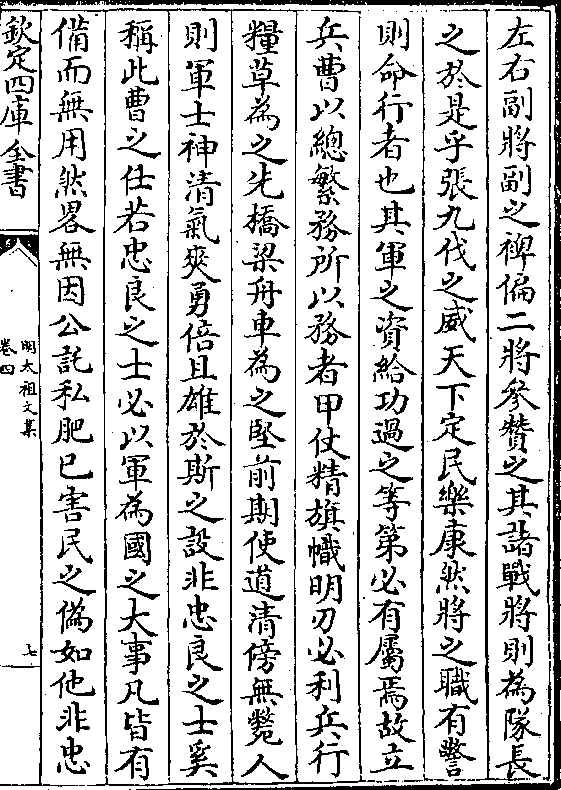 左右副將副之裨偏二將參贊之其諸戰將則為隊長
之於是乎張九伐之威天下定民樂康然將之職有警
則命行者也其軍之資給功過之等第必有屬焉故立
兵曹以總繁務所以務者甲仗精旗幟明刃必利兵行
糧草為之先橋梁舟車為之堅前期使道清傍無斃人
則軍士神清氣爽勇倍且雄於斯之設非忠良之士奚
稱此曹之仕若忠良之士必以軍為國之大事凡皆有
備而無用然畧無因公託私肥已害民之偽如他非忠
欽定四庫全書
明太祖文集
卷四
七